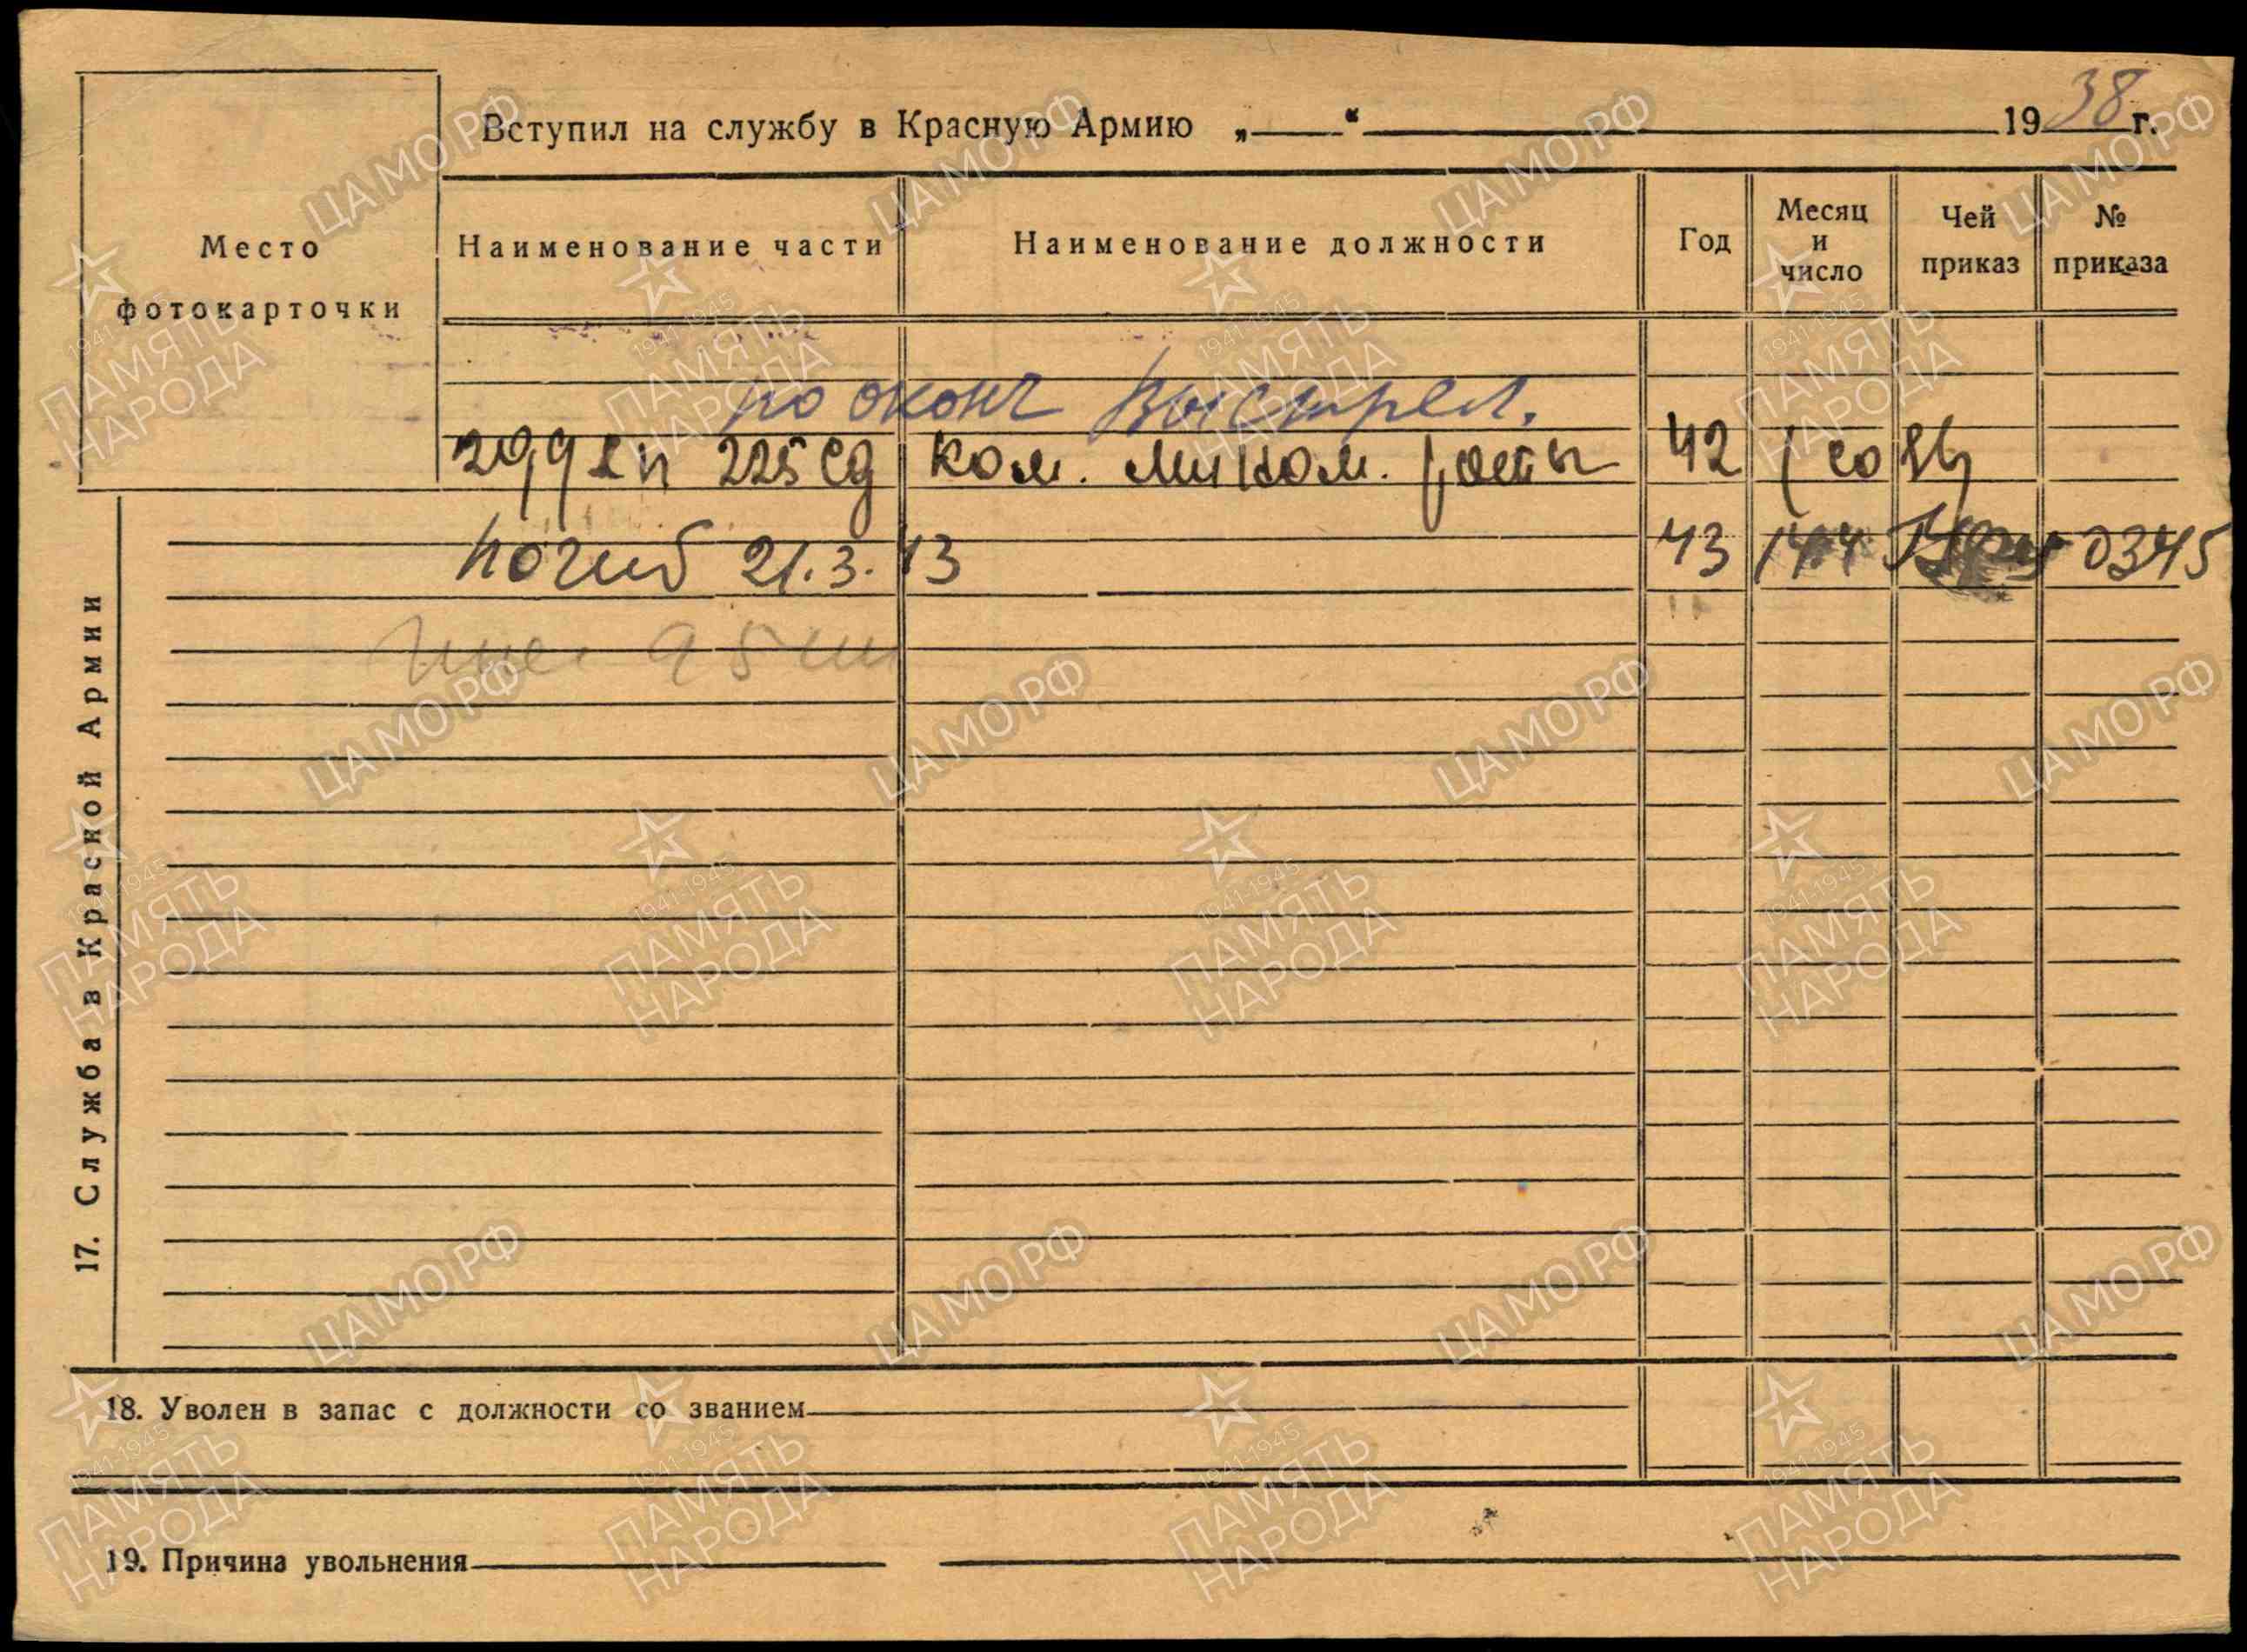 Вступил на службу в Красную Армию „ “ 1938 г.
Место
фотокарточки
Наименование части
Наименование должности
Год
Месяц
и
число
Чей
приказ
№
приказа
по оконч Выстрел.
299 сп 225 сд ком. мином. роты 42
погиб 21.3.43 43 0345
17. Служба в Красной Армии
18. Уволен в запас с должности со званием
19. Причина увольнения
ЦАМО.РФ
1941-1945
ПАМЯТЬ
НАРОДА